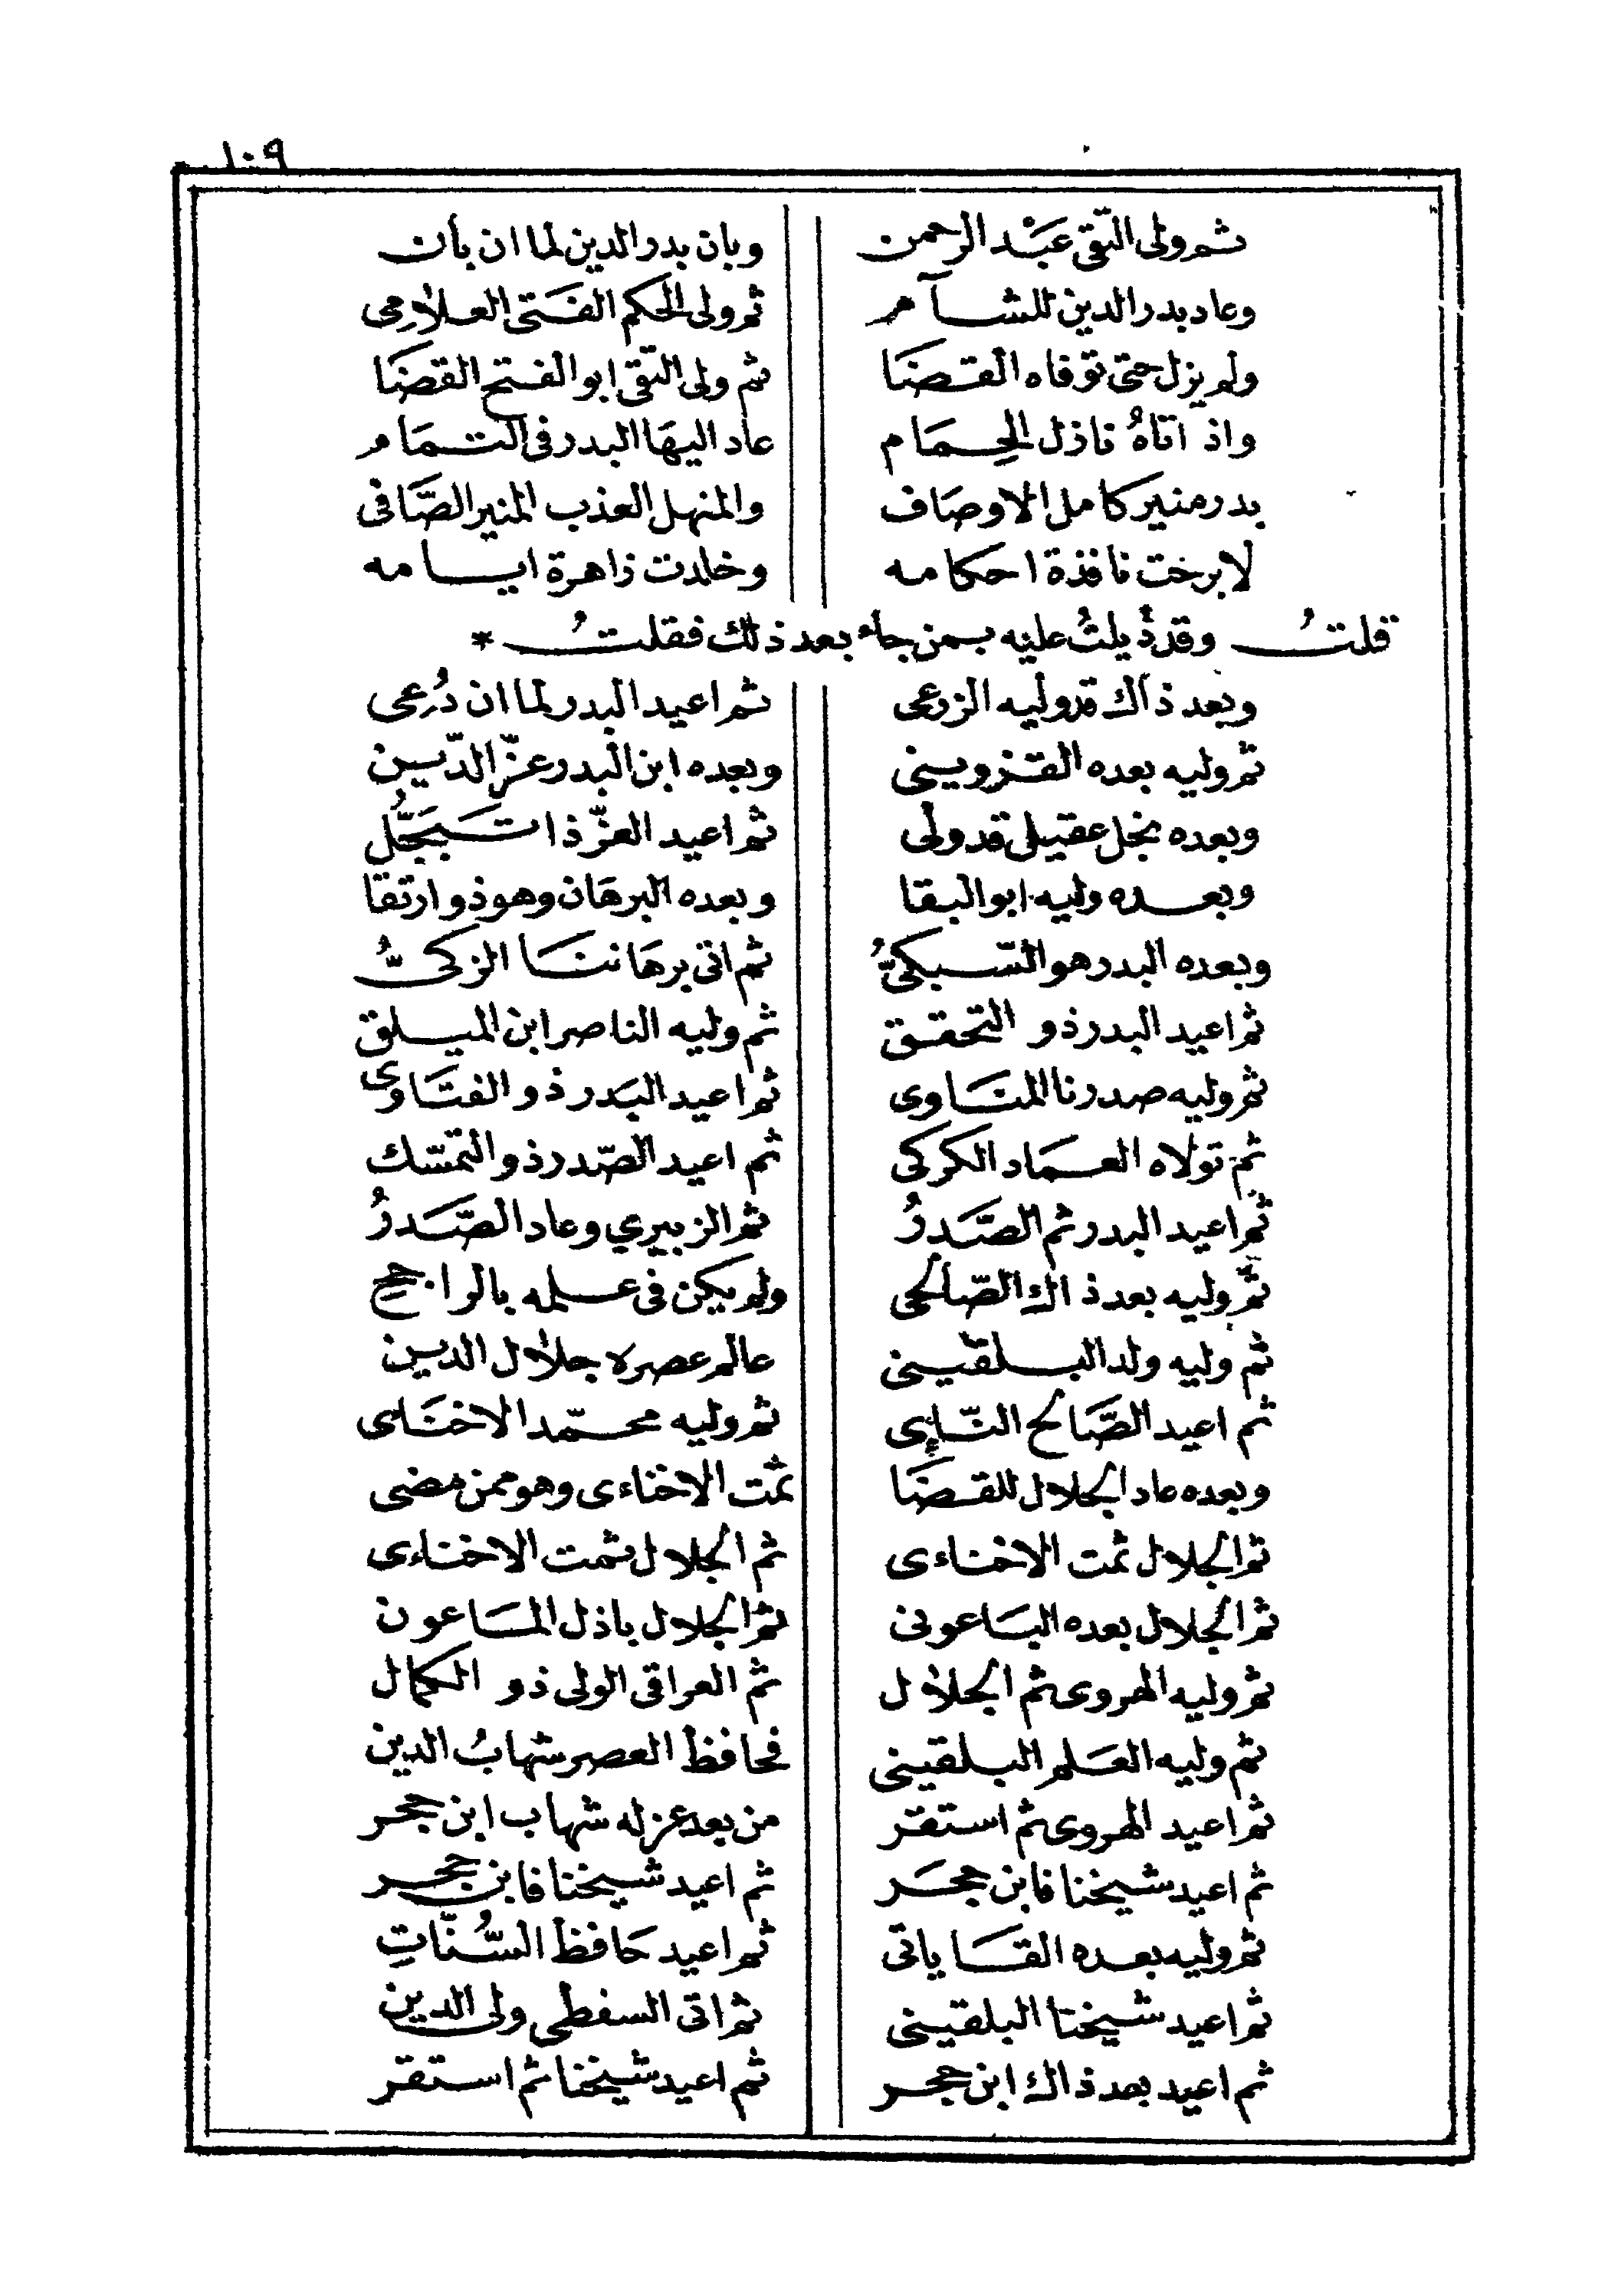 ١٠٩
ثم ولى التقى عبْد الرحمن وبان بدر الدين لما ان بان
وعاد بدر الدين للشآم ثم ولى الحكم الفتى العلامى
ولم يزل حتى توفاه القضا ثم ولى التقى ابو الفتح القضا
واذ اتاهُ نازل الحِمام عاد اليها البدر فى التمام
بدر منير كامل الاوصاف والمنهل العذب المنير الصّافى
لا برحت نافذة احكامه وخلدت زاهرة ايامه
قلتُ وقد ذيلتُ عليه بمن جاء بعد ذلك فقلتُ *
وبعد ذاك قد وليه الزرعى ثم اعيد البدر لما ان دُعى
ثم وليه بعده القزوينى وبعده ابن البدر عزّ الدّين
وبعده نجل عقيلى قد ولى ثم اعيد العزّ ذا تبجُّل
وبعده وليه ابو البقا وبعده البرهان وهو ذو ارتقا
وبعده البدر هو السّبكىُّ ثم اتى برهاننا الزكىُّ
ثم اعيد البدر ذو التحقق ثم وليه الناصر ابن الميلق
ثم وليه صدرنا المناوى ثم اعيد البَدر ذو الفتاوى
ثم تولاه العماد الكركى ثم اعيد الصّدر ذو التمسّك
ثم اعيد البدر ثم الصَّدرُ ثم الزبيري وعاد الصَّدرُ
ثم وليه بعد ذاك الصّالحى ولم يكن فى علمه بالراجح
ثم وليه ولد البلقينى عالم عصره جلال الدين
ثم اعيد الصَّالح النّاءِى ثم وليه محمّد الاخناى
وبعده عاد الجلال للقضا ثمت الاخناءى وهو ممن مضى
ثم الجلال ثمت الاخناءى ثم الجلال ثمت الاخناءى
ثم الجلال بعده الباعونى ثم الجلال باذل الماعون
ثم وليه الهروى ثم الجلال ثم العراقى الولى ذو الكمال
ثم وليه العَلم البلقينى فحافظ العصر شهابُ الدين
ثم اعيد الهروى ثم استقر من بعد عزله شهاب ابن حجر
ثم اعيد شيخنا فابن حجر ثم اعيد شيخنا فابن حجر
ثم وليه بعده القاياتى ثم اعيد حافظ السُّنّاتِ
ثم اعيد شيخنا البلقينى ثم اتى السفطى ولى الدين
ثم اعيد بعد ذاك ابن حجر ثم اعيد شيخنا ثم استقر